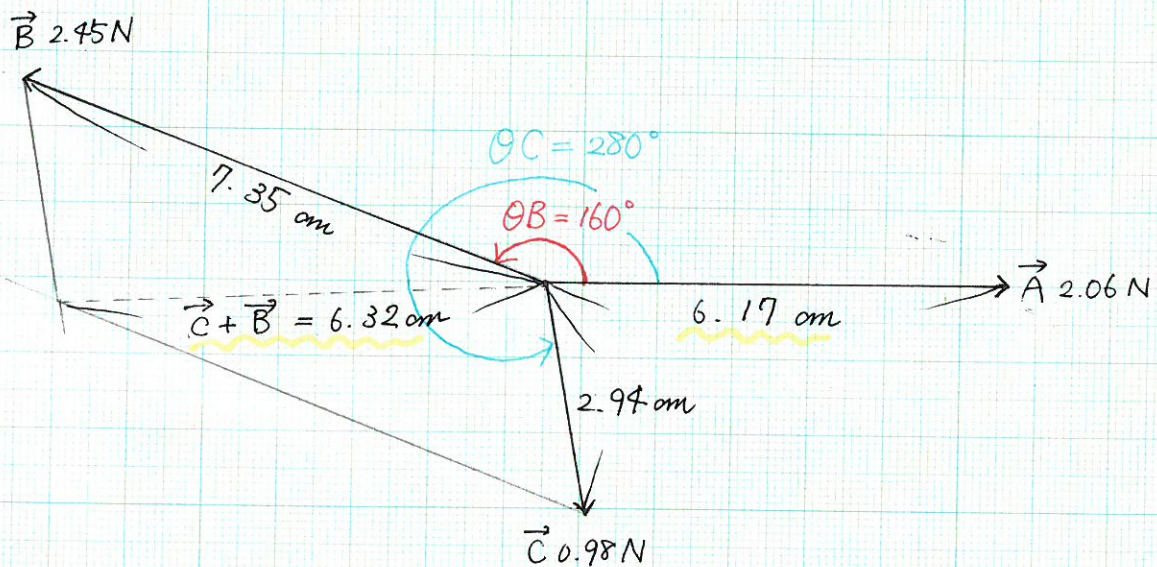 →B 2.45N
θC = 280°
7.35 cm
θB = 160°
→A 2.06 N
→C + →B = 6.32 cm
6.17 cm
2.94 cm
→C 0.98 N